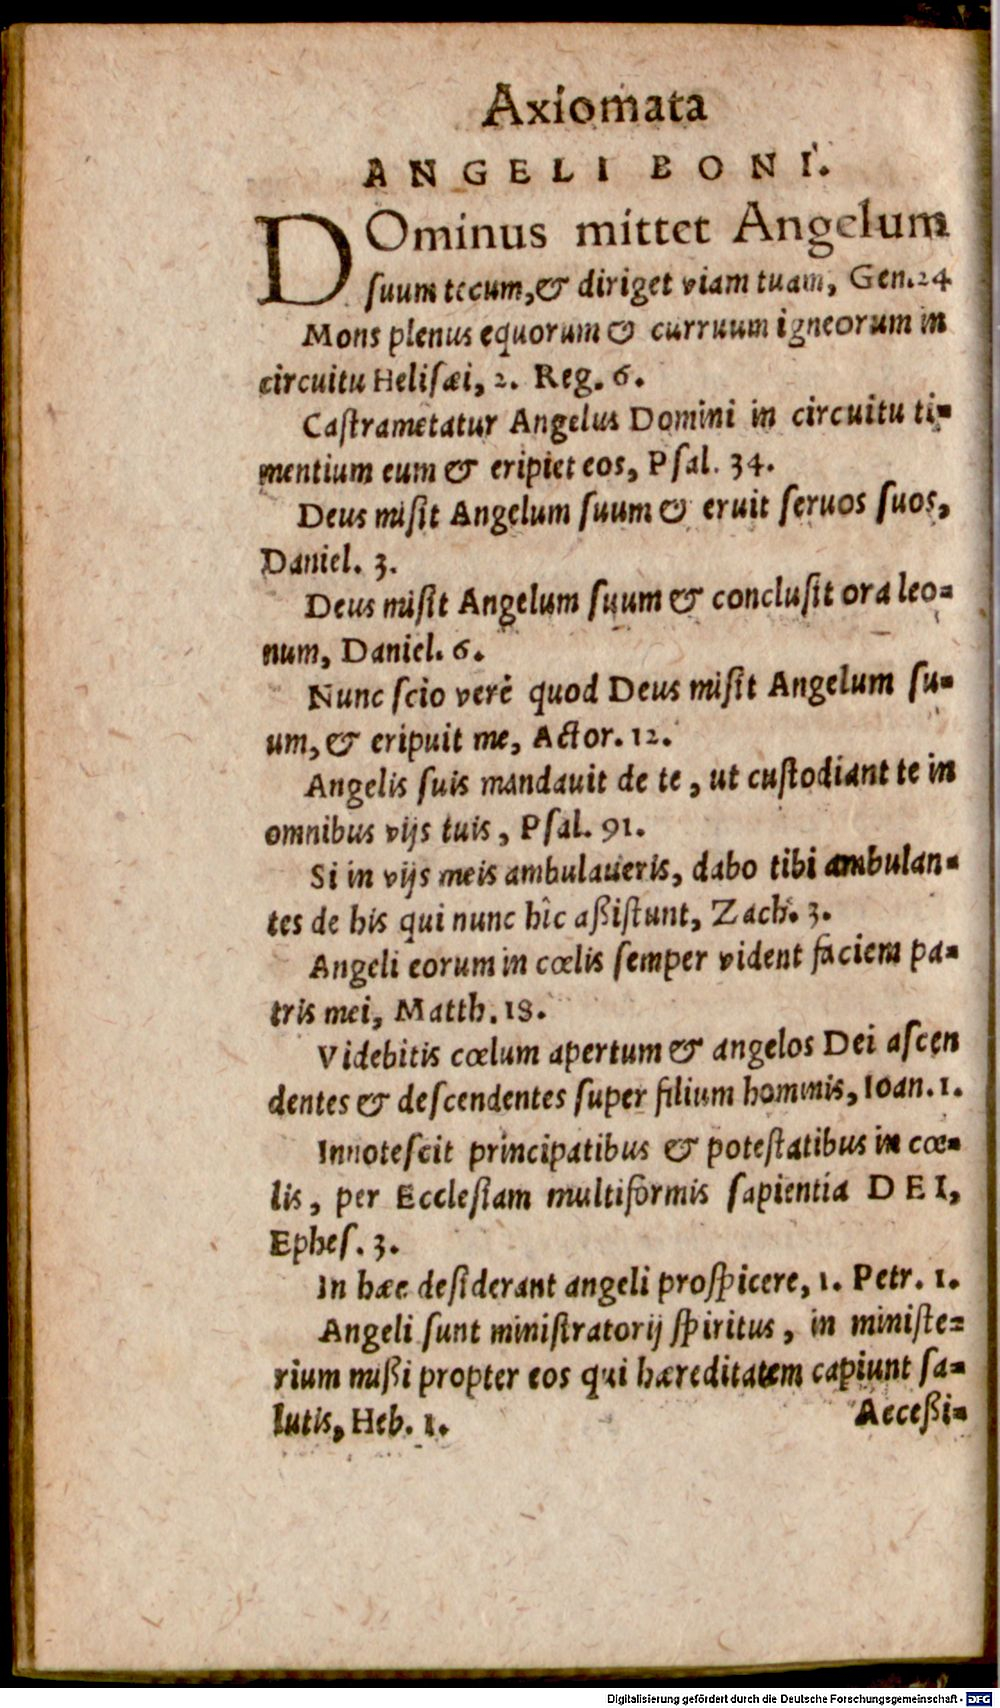 Axiomata
ANGELI BONI.
DOminus mittet Angelum
ſuum tecum, & diriget viam tuam, Gen. 24
Mons plenus equorum & curruum igneorum in
circuitu Heliſæi, 2. Reg. 6.
Caſtrametatur Angelus Domini in circuitu ti-
mentium eum & eripiet eos, Pſal. 34.
Deus miſit Angelum ſuum & eruit ſeruos ſuos,
Daniel. 3.
Deus miſit Angelum ſuum & concluſit ora leo-
num, Daniel. 6.
Nunc ſcio verè quod Deus miſit Angelum ſu-
um, & eripuit me, Actor. 12.
Angelis ſuis mandauit de te, ut cuſtodiant te in
omnibus vijs tuis, Pſal. 91.
Si in vijs meis ambulaueris, dabo tibi ambulan-
tes de his qui nunc hîc aßiſtunt, Zach. 3.
Angeli eorum in cœlis ſemper vident faciem pa-
tris mei, Matth. 18.
Videbitis cœlum apertum & angelos Dei aſcen
dentes & deſcendentes ſuper filium hominis, Ioan. 1.
Innoteſcit principatibus & poteſtatibus in cœ-
lis, per Eccleſiam multiformis ſapientia DEI,
Epheſ. 3.
In hæc deſiderant angeli proſpicere, 1. Petr. 1.
Angeli ſunt miniſtratorij ſpiritus, in miniſte-
rium mißi propter eos qui hæreditatem capiunt ſa-
lutis, Heb. 1.
Acceßi-
Digitalisierung gefördert durch die Deutsche Forschungsgemeinschaft - DFG